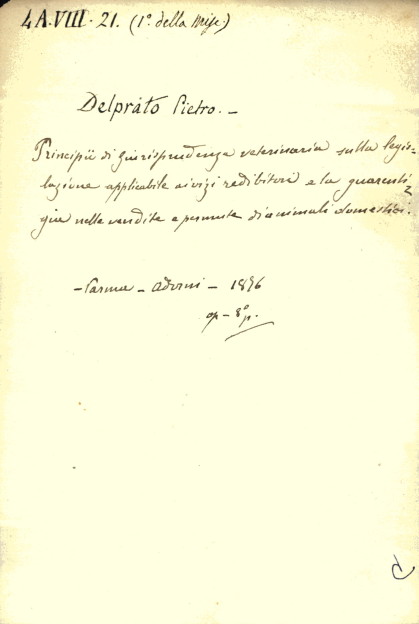 4A.VIII.21. (1º. della Misc.)
Delprato Pietro. -
Principii di giurisprudenza veterinaria sulla legis=
lazione applicabile ai vizi redibitori e la guarenti=
gia nelle vendite e permute di animali domestici.
- Parma - Adorni - 1876
op - 8º p.